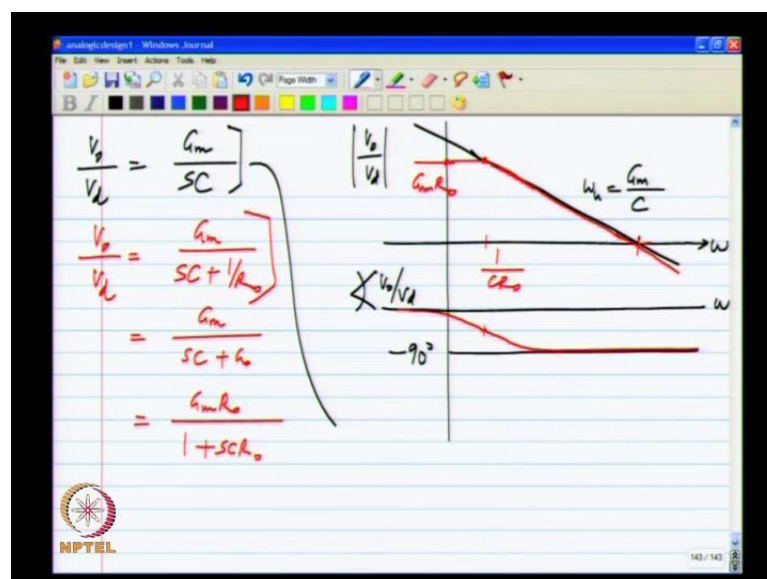 analogicdesign1 - Windows Journal
File Edit View Insert Actions Tools Help
Page Width
B I
V₀/V_d = G_m/SC
V₀/V_d = G_m/(SC + 1/R₀)
= G_m/(SC + G₀)
= G_mR₀/(1 + SCR₀)
|V₀/V_d|
G_mR₀
ω_u = G_m/C
ω
1/CR₀
∠V₀/V_d
ω
-90°
NPTEL
143 / 143